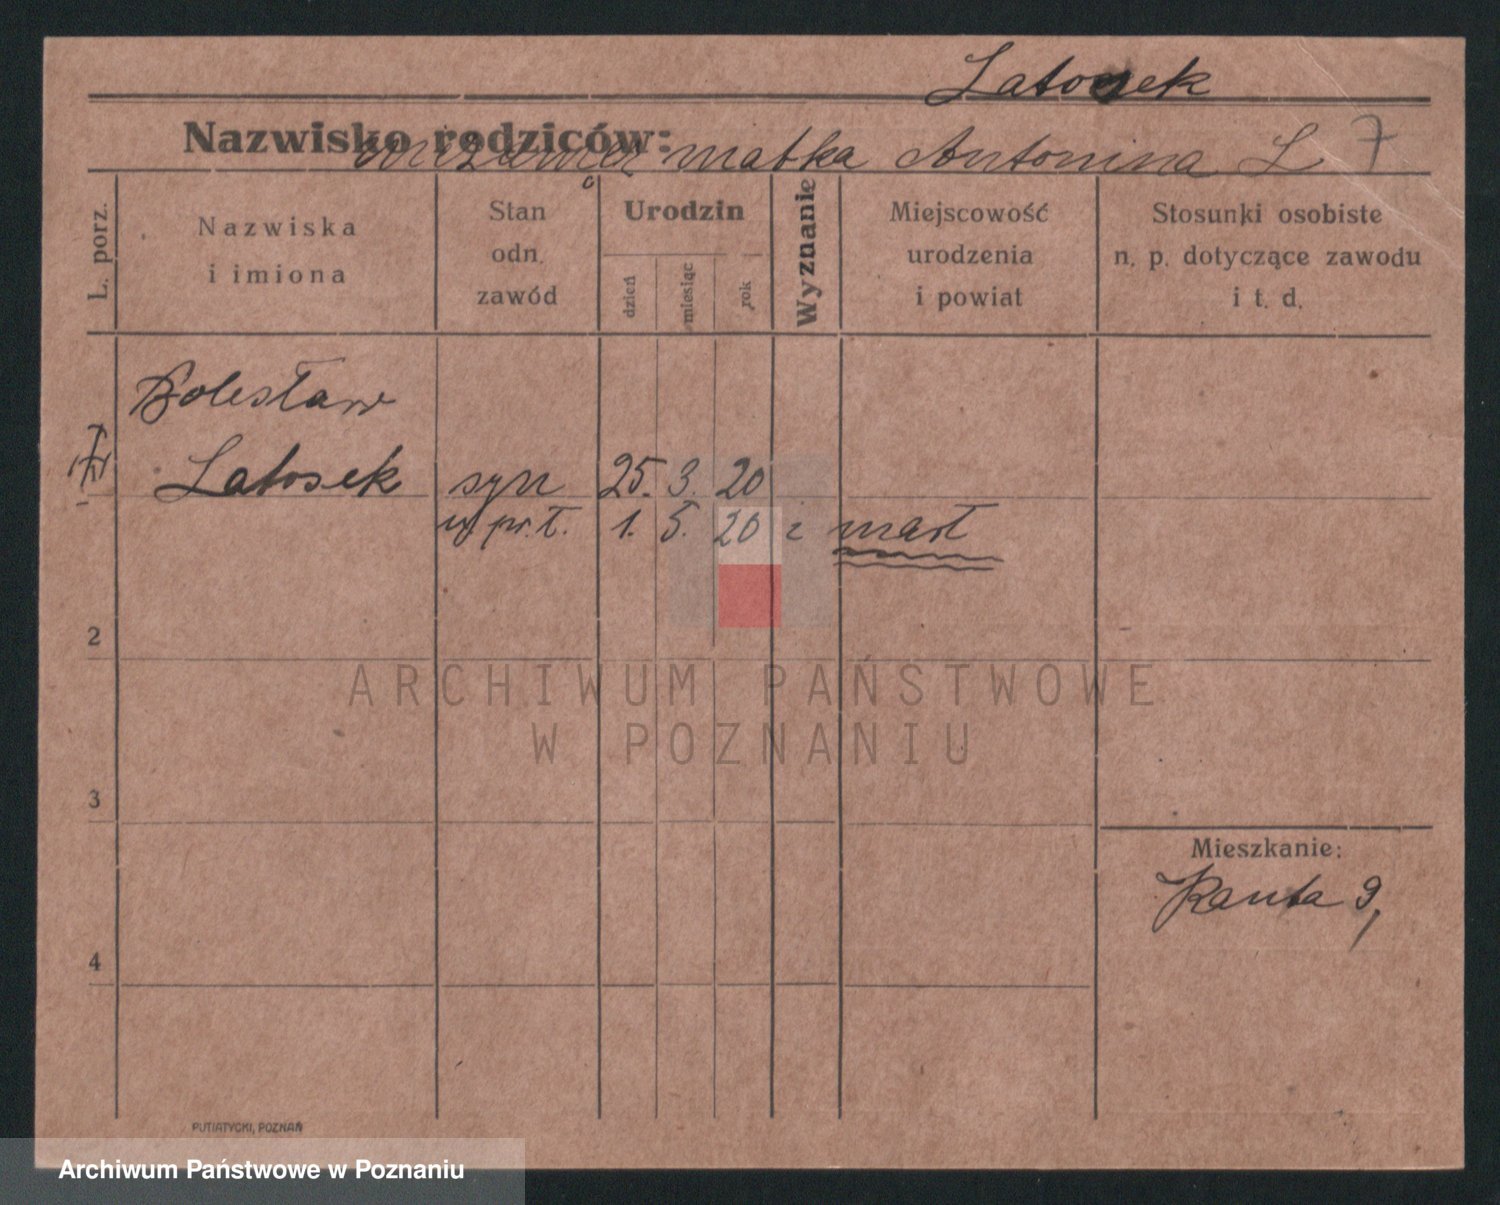 Latosek
Nazwisko rodziców: matka Antonina L 7
L. porz.
Nazwiska
i imiona
Stan
odn.
zawód
Urodzin
dzień
miesiąc
rok
Wyznanie
Miejscowość
urodzenia
i powiat
Stosunki osobiste
n. p. dotyczące zawodu
i t. d.
Bolesław
Latosek syn 25. 3. 20
1. 5. 20 i marł
2
ARCHIWUM PAŃSTWOWE
W POZNANIU
3
Mieszkanie:
Kanta 9,
4
PUTIATYCKI, POZNAŃ
Archiwum Państwowe w Poznaniu